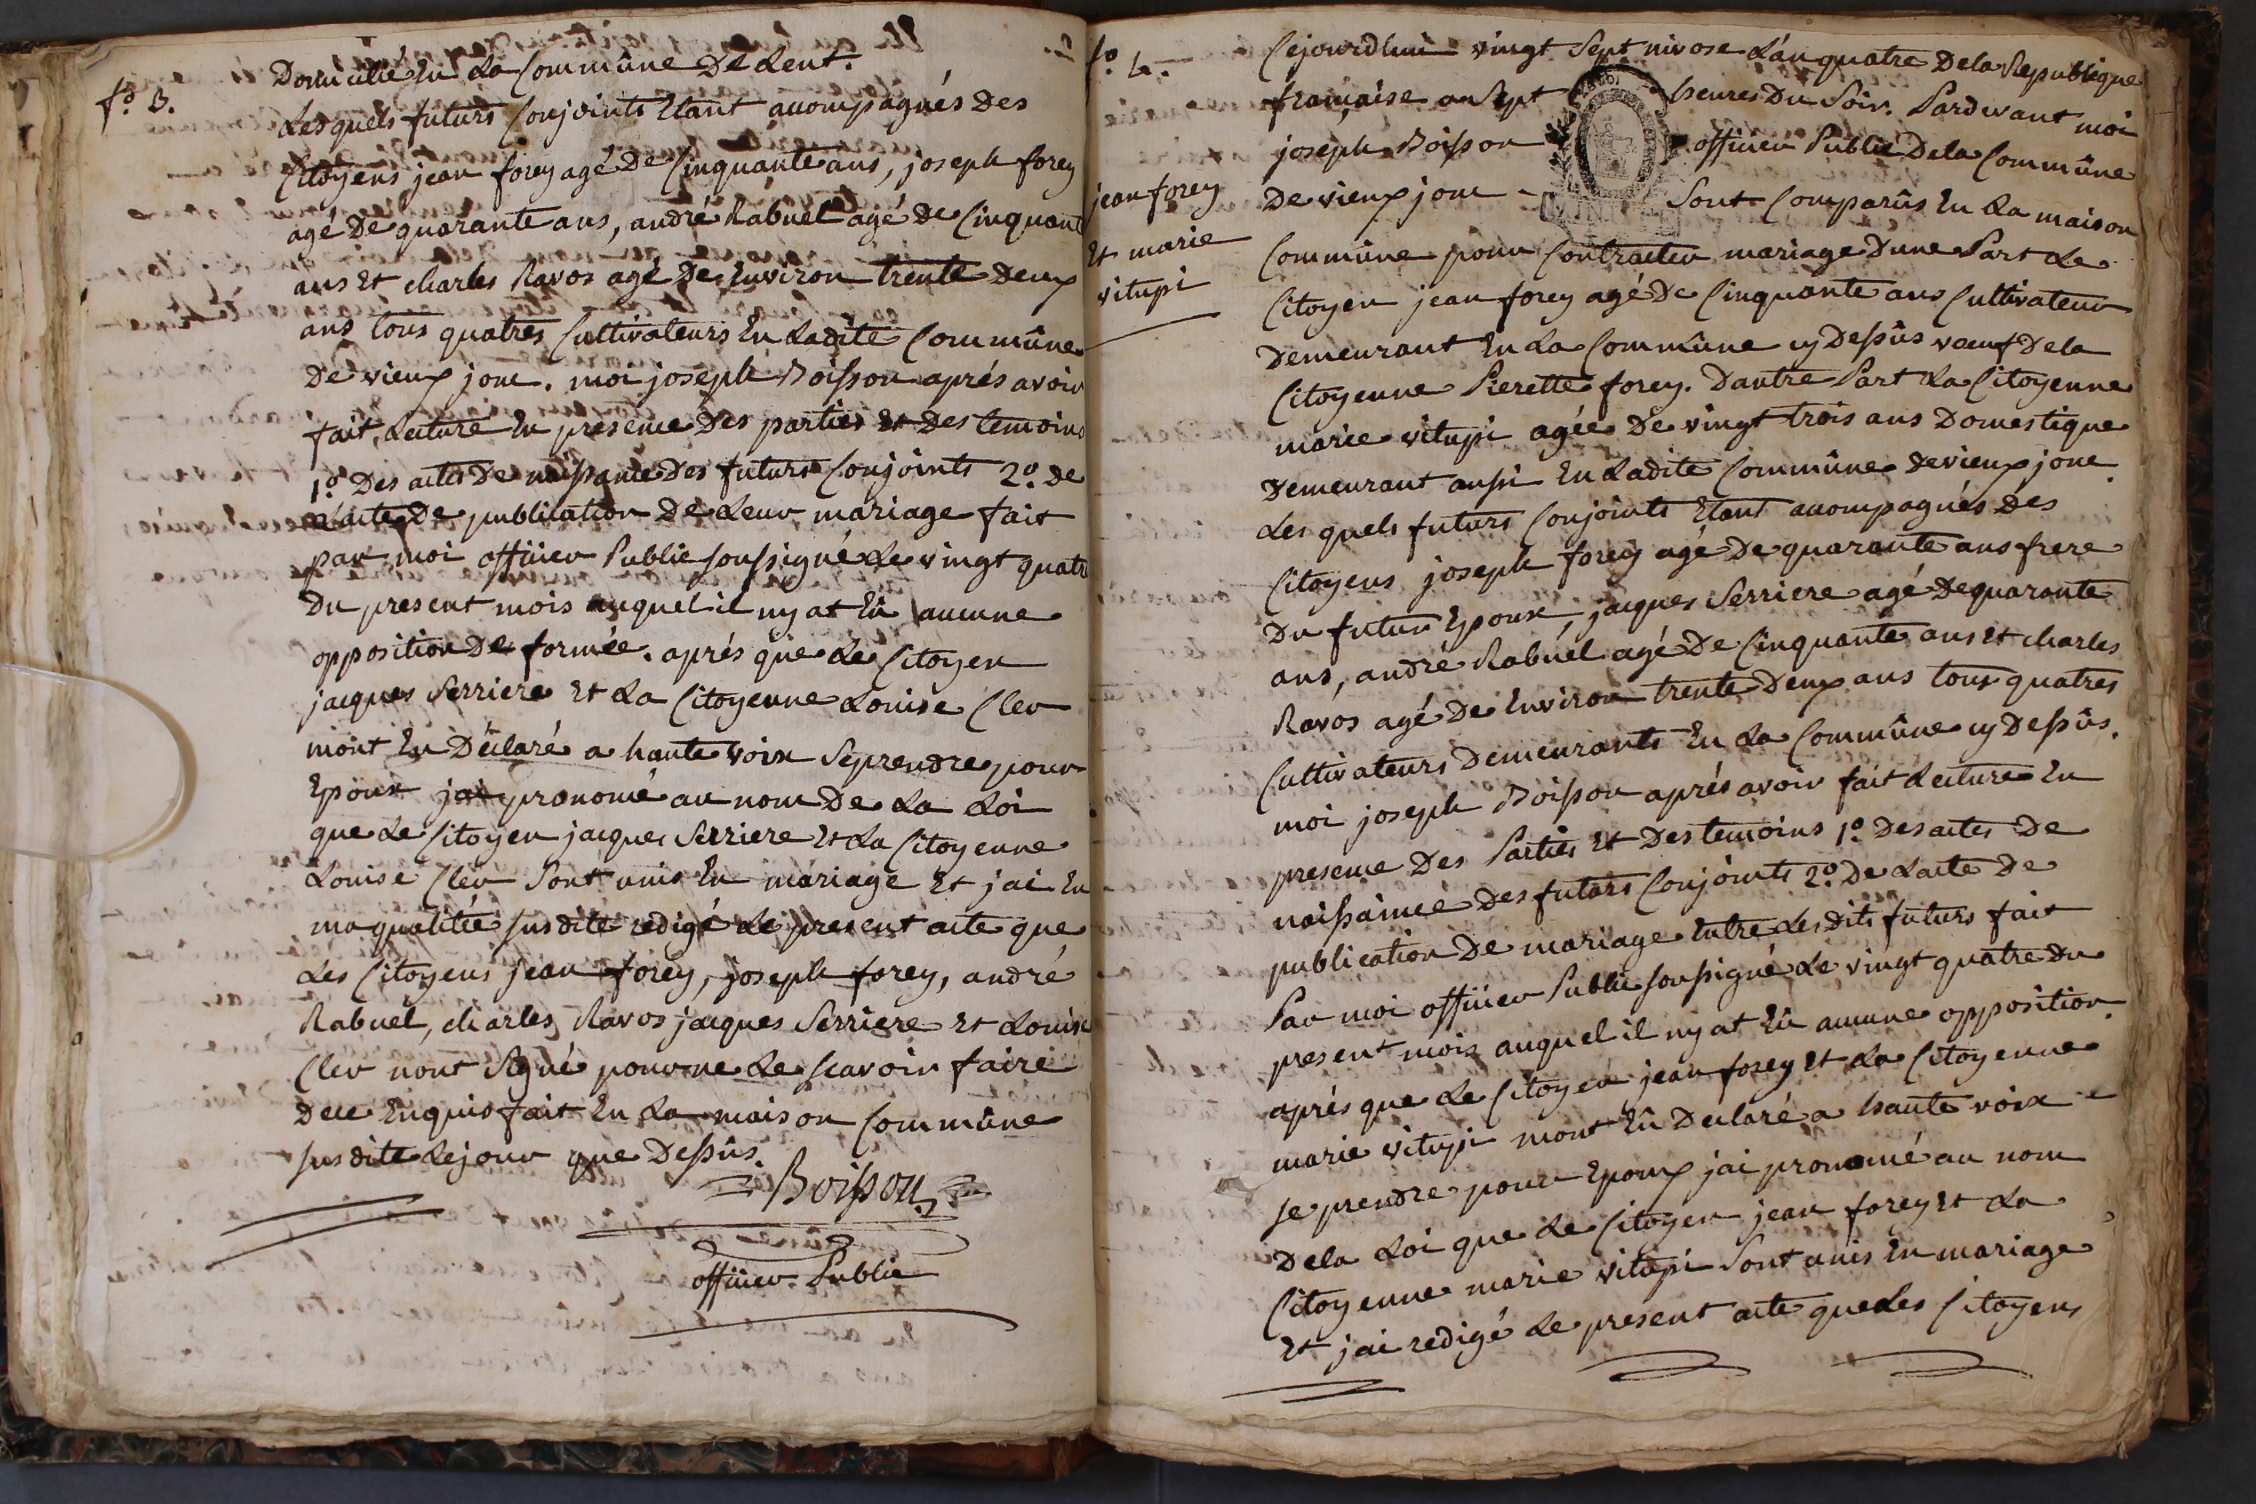 fo. 3.
Domicilié En La Commûne De Lent.
Lesquels futurs Conjoints Etant accompagnés des
Citoyens jean forey agé De Cinquante ans, joseph forey
agé De quarante ans, andré Rabuel agé De Cinquante
ans Et charles Ravos agé De Environ trente Deux
ans tous quatres Cultivateurs En Ladite Commûne
De vieux jonc. moi joseph Boisson aprés avoir
fait Lecture En presence Des parties Et Des temoins
1o. Des actes De naissance Des futurs Conjoints 2o. de
L'acte De publication De Leur mariage fait
par moi officier Public soussigné Le vingt quatre
Du present mois auquel il ny at Eû aucune
opposition De formée. aprés que Le Citoyen
jacques Serriere Et La Citoyenne Louise Cler
mont Eu Déclaré a haute voix Se prendre pour
Epoux jai prononcé au nom De La Loi
que Le Citoyen jacques Serriere Et La Citoyenne
Louise Cler Sont unis En mariage Et jai En
ma qualitée susdite redigé Le present acte que
Les Citoyens jean forey, joseph forey, andré
Rabuel, charles Ravos jacques Serriere Et Louise
Cler nont Signé pour ne Le scavoir faire
Dece Enquis fait En La maison Commûne
susdite Le jour que Dessûs.
Boisson
officier Public
fo. 4.
jean forey
Et marie
vitupi
Cejourdhui vingt Sept nivose L'an quatre De la Republique
française a Sept heures Du Soir. Pardevant moi
joseph Boisson officier Public De la Commûne
De vieux jonc - Sont Comparûs En La maison
Commûne pour Contracter mariage D'une Part Le
Citoyen jean forey agé De Cinquante ans Cultivateur
Demeurant En La Commûne cy Dessûs vœuf De la
Citoyenne Pierette forey. Dautre Part La Citoyenne
marie vitupi agée De vingt trois ans Domestique
Demeurant aussi En Ladite Commûne de vieux jonc.
Les quels futurs Conjoints Etant accompagnés Des
Citoyens joseph forey agé De quarante ans frere
Du futur Epoux, jacques Serriere agé De quarante
ans, andré Rabuel agé De Cinquante ans Et charles
Ravos agé De Environ trente Deux ans tous quatres
Cultivateurs Demeurants En La Commûne cy Dessûs.
moi joseph Boisson aprés avoir fait Lecture En
presence Des Parties Et Des temoins 1o. Des actes De
naissance Des futurs Conjoints 2o. De Lacte De
publication De mariage Entre Lesdits futurs fait
Par moi officier Public soussigné Le vingt quatre Du
present mois auquel il ny at Eû aucune opposition.
aprés que Le Citoyen jean forey Et La Citoyenne
marie vitupi mont Eû Declaré a haute voix
se prendre pour Epoux jai prononcé au nom
De la Loi que Le Citoyen jean forey Et La
Citoyenne marie vitupi Sont unis En mariage
Et jai redigé Le present acte que Les Citoyens